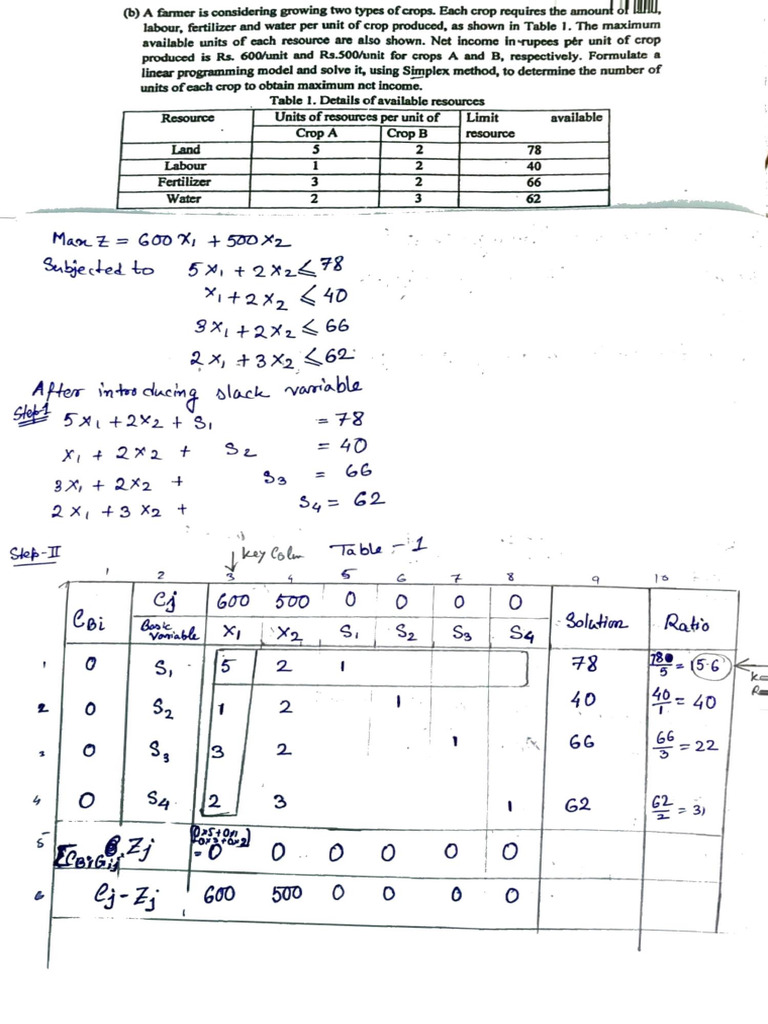 (b) A farmer is considering growing two types of crops. Each crop requires the amount of
labour, fertilizer and water per unit of crop produced, as shown in Table 1. The maximum
available units of each resource are also shown. Net income in rupees per unit of crop
produced is Rs. 600/unit and Rs.500/unit for crops A and B, respectively. Formulate a
linear programming model and solve it, using Simplex method, to determine the number of
units of each crop to obtain maximum net income.
Table 1. Details of available resources
Resource Units of resources per unit of Limit available
Crop A Crop B resource
Land 5 2 78
Labour 1 2 40
Fertilizer 3 2 66
Water 2 3 62
Max Z = 600 x1 + 500 x2
Subjected to 5x1 + 2x2 ≤ 78
x1 + 2x2 ≤ 40
3x1 + 2x2 ≤ 66
2x1 + 3x2 ≤ 62
After introducing slack variable
Step-1 5x1 + 2x2 + S1 = 78
x1 + 2x2 + S2 = 40
3x1 + 2x2 + S3 = 66
2x1 + 3x2 + S4 = 62
Step-II Key Colm Table - 1
1 2 3 4 5 6 7 8 9 10
CBi Cj 600 500 0 0 0 0 Solution Ratio
Basic Variable x1 x2 S1 S2 S3 S4
1 0 S1 5 2 1 78 780/5 = 15.6
2 0 S2 1 2 1 40 40/1 = 40
3 0 S3 3 2 1 66 66/3 = 22
4 0 S4 2 3 1 62 62/2 = 31
5 Zj = 0 0 0 0 0 0
6 Cj - Zj 600 500 0 0 0 0